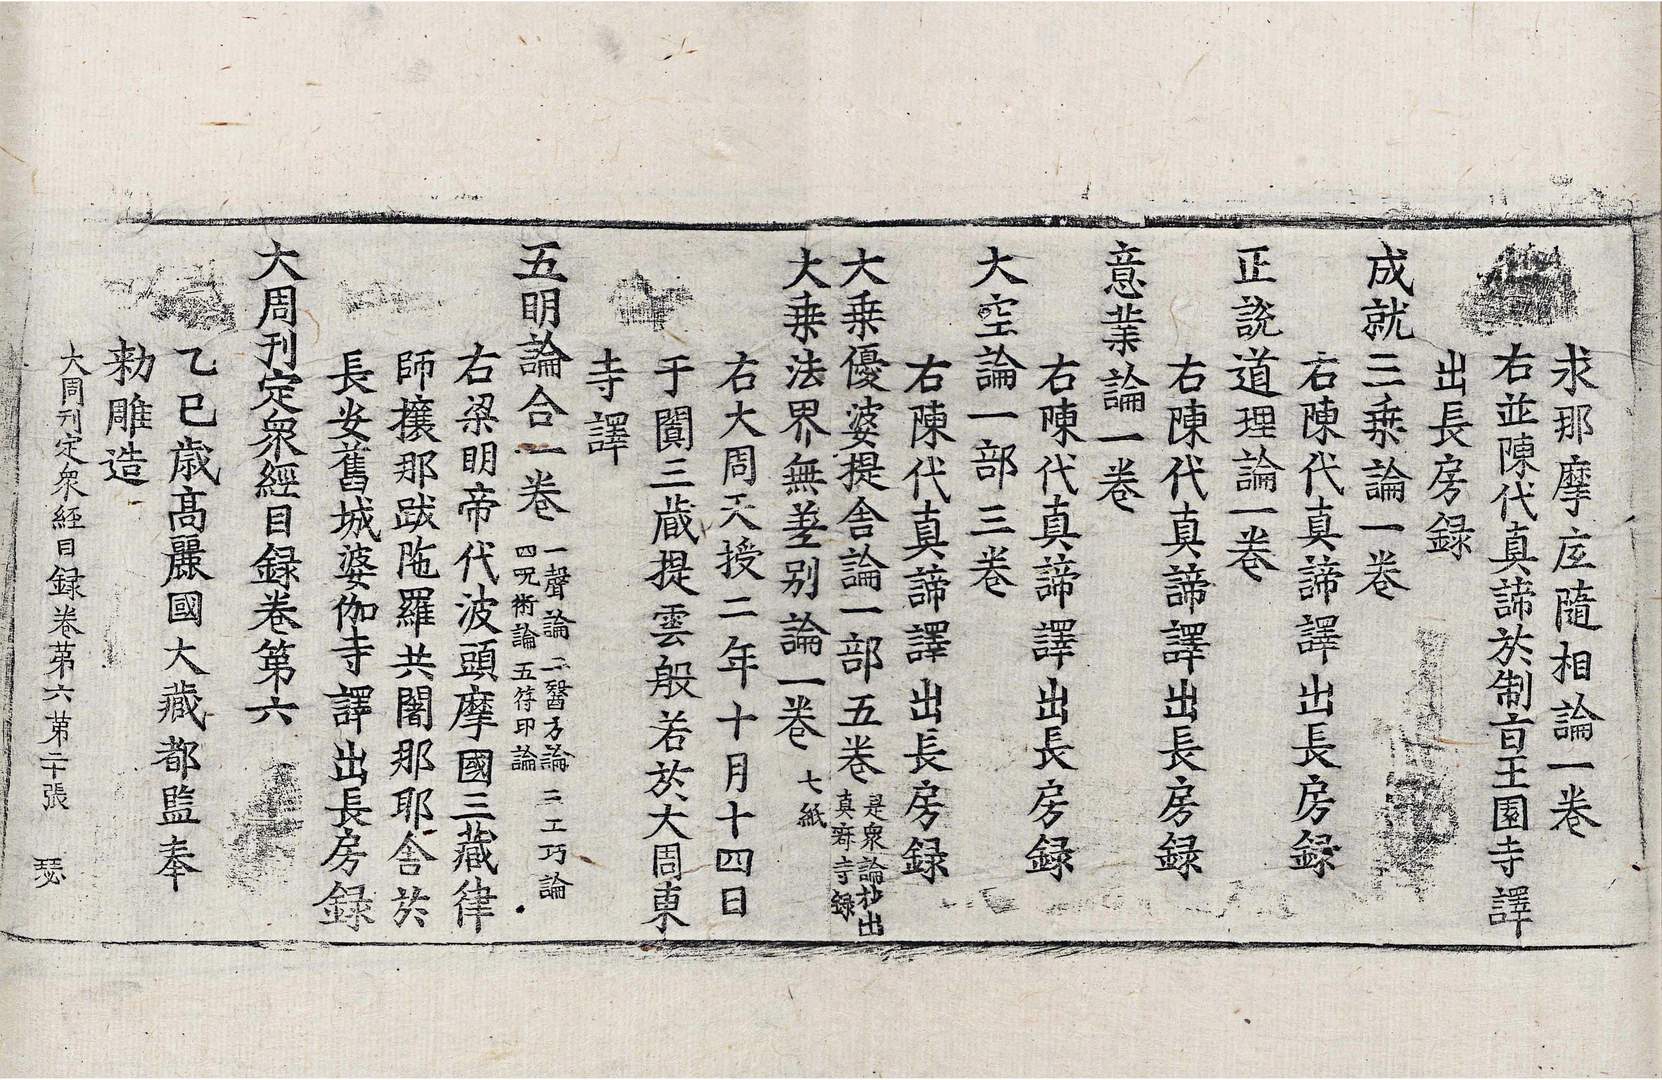 求那摩㡳隨相論一卷
右並陳代真諦於制㫖王園寺譯
出長房録
成就三乗論一卷
右陳代真諦譯出長房録
正說道理論一卷
右陳代真諦譯出長房録
意業論一卷
右陳代真諦譯出長房録
大空論一部三卷
右陳代真諦譯出長房録
大乗優婆提舍論一部五卷 是衆論抄出
真寂寺録
大乗法界無差别論一卷 七紙
右大周天授二年十月十四日
于闐三藏提雲般若於大周東
寺譯
五明論合一卷 一聲論 二醫方論 三工巧論
四呪術論 五符印論
右梁明帝代波頭摩國三藏律
師攘那跋陁羅共闍那耶舍於
長安舊城婆伽寺譯出長房録
大周刊定衆經目録卷第六
乙巳歳髙麗國大藏都監奉
勅雕造
大周刊定衆經目録卷第六 第二十張 瑟